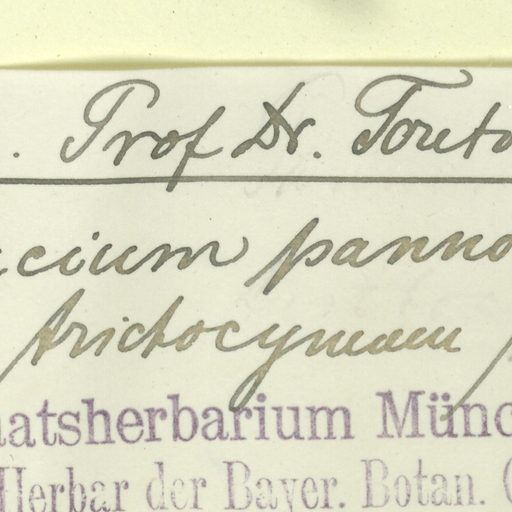 . Prof Dr. Touto
cium panno
aristocymum
aatsherbarium Münc
Herbar der Bayer. Botan. G